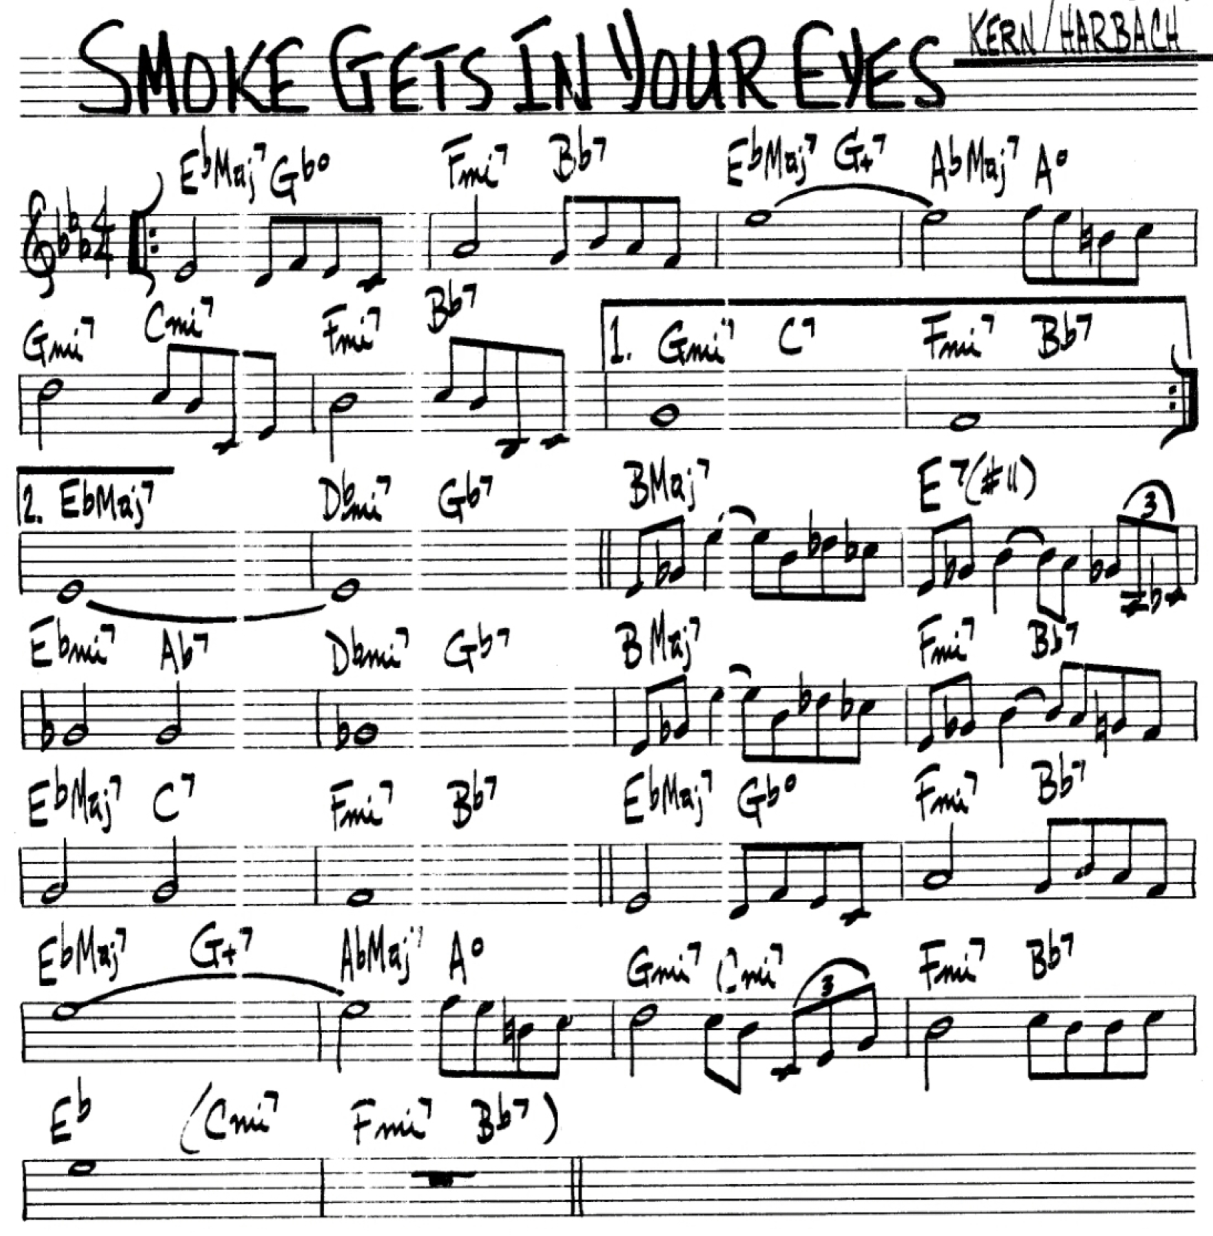 SMOKE GETS IN YOUR EYES KERN/HARBACH
EbMaj7 Gbo Fmi7 Bb7 EbMaj7 G+7 AbMaj7 Ao
4
4
Gmi7 Cmi7 Fmi7 Bb7 1. Gmi7 C7 Fmi7 Bb7
2. EbMaj7 Dbmi7 Gb7 BMaj7 E7(#11)
3
Ebmi7 Ab7 Dbmi7 Gb7 BMaj7 Fmi7 Bb7
EbMaj7 C7 Fmi7 Bb7 EbMaj7 Gbo Fmi7 Bb7
EbMaj7 G+7 AbMaj7 Ao Gmi7 Cmi7 Fmi7 Bb7
3
Eb (Cmi7 Fmi7 Bb7)